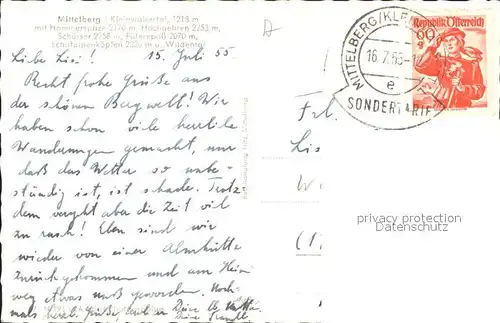 Mittelberg / Kleinwalsertal, 1218 m
mit Hammerspitze 2170 m, Hochgehren 2252 m,
Schüsser 2258 m, Fiderepaß 2070 m,
Schüsser 2170 m u. Wildental
Liebe Lisi! 15. Juli 55
Recht frohe Grüße aus
der schönen Bergwelt! Wir
haben schon viele herrliche
Wanderungen gemacht, nur
daß das Wetter so unbe-
ständig ist, ist schade. Trotz-
dem vergeht aber die Zeit viel
zu rasch! Eben sind wir
wieder von einer Almhütte
zurückgekommen und am Heim
weg etwas naß geworden. Noch-
mals herzl. Grüße,
MITTELBERG/KLE
16.7.55
e
SONDERTARIF
Republik Österreich
60 g
Frl.
Lis
privacy protection
Danubius.de